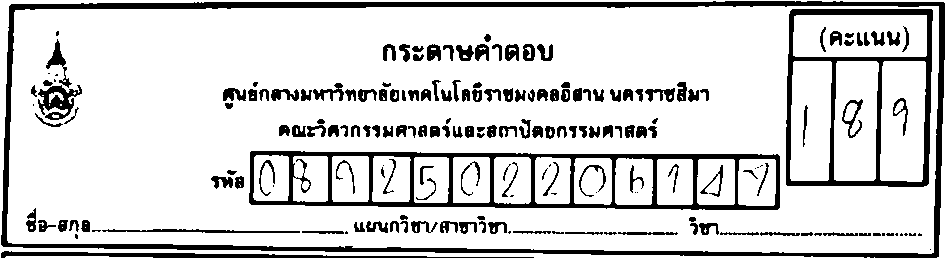 กระดาษคำตอบ
(คะแนน)
ศูนย์กลางมหาวิทยาลัยเทคโนโลยีราชมงคลอีสาน นครราชสีมา
คณะวิศวกรรมศาสตร์และสถาปัตยกรรมศาสตร์
189
รหัส 089250220614
ชื่อ-สกุล แผนกวิชา/สาขาวิชา วิชา